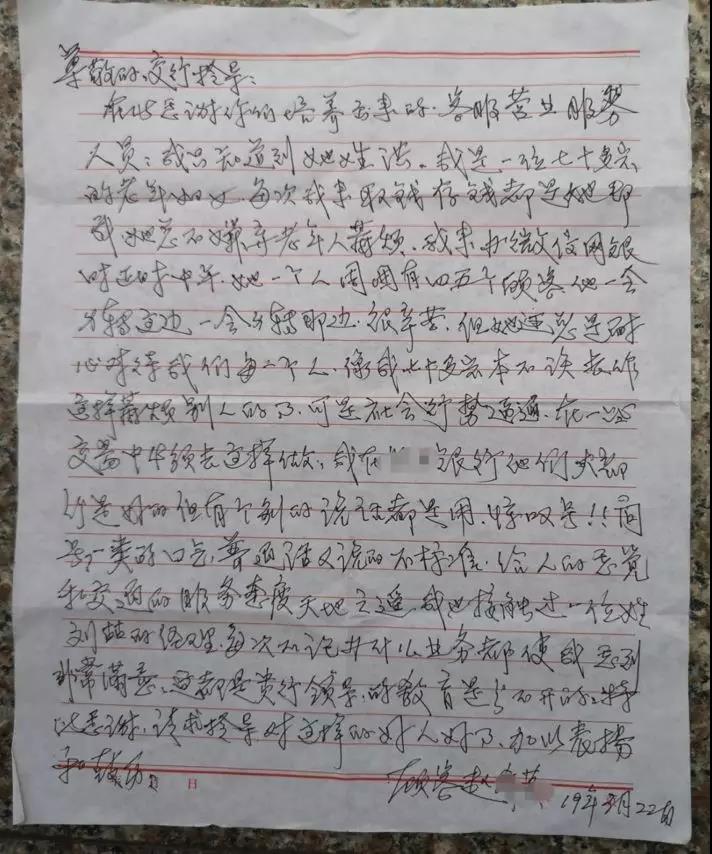 尊敬的交行领导：
在此感谢你们培养出来的客服营业服务
人员：我只知道到她姓洪。我是一位七十多岁
的老年妇女，每次我来取钱存钱都是她帮
我她总不嫌弃老年人麻烦，我来办微信网银
时正时中午，她一个人周围有四五个顾客他一会
儿转这边一会儿转那边，很辛苦，但她还总是耐
心对待我们每一个人，像我七十多岁本不该去作
这样麻烦别人的了，可是社会形势逼迫，在一些
交易中必须去这样做，我在 银行他们大部
分是好的但有个别的说话都是用，惊叹号!!问
号一类的口气，普通话又说的不标准，给人的感觉
和交通的服务态度天地之遥，我也接触过一位姓
刘的经理，每次不论办什么业务都使我感到
非常满意，这都是贵行领导的教育是分不开的，特
此感谢，请求领导对这样的好人好事，加以表扬
和鼓励
日
顾客赵 19年3月22日